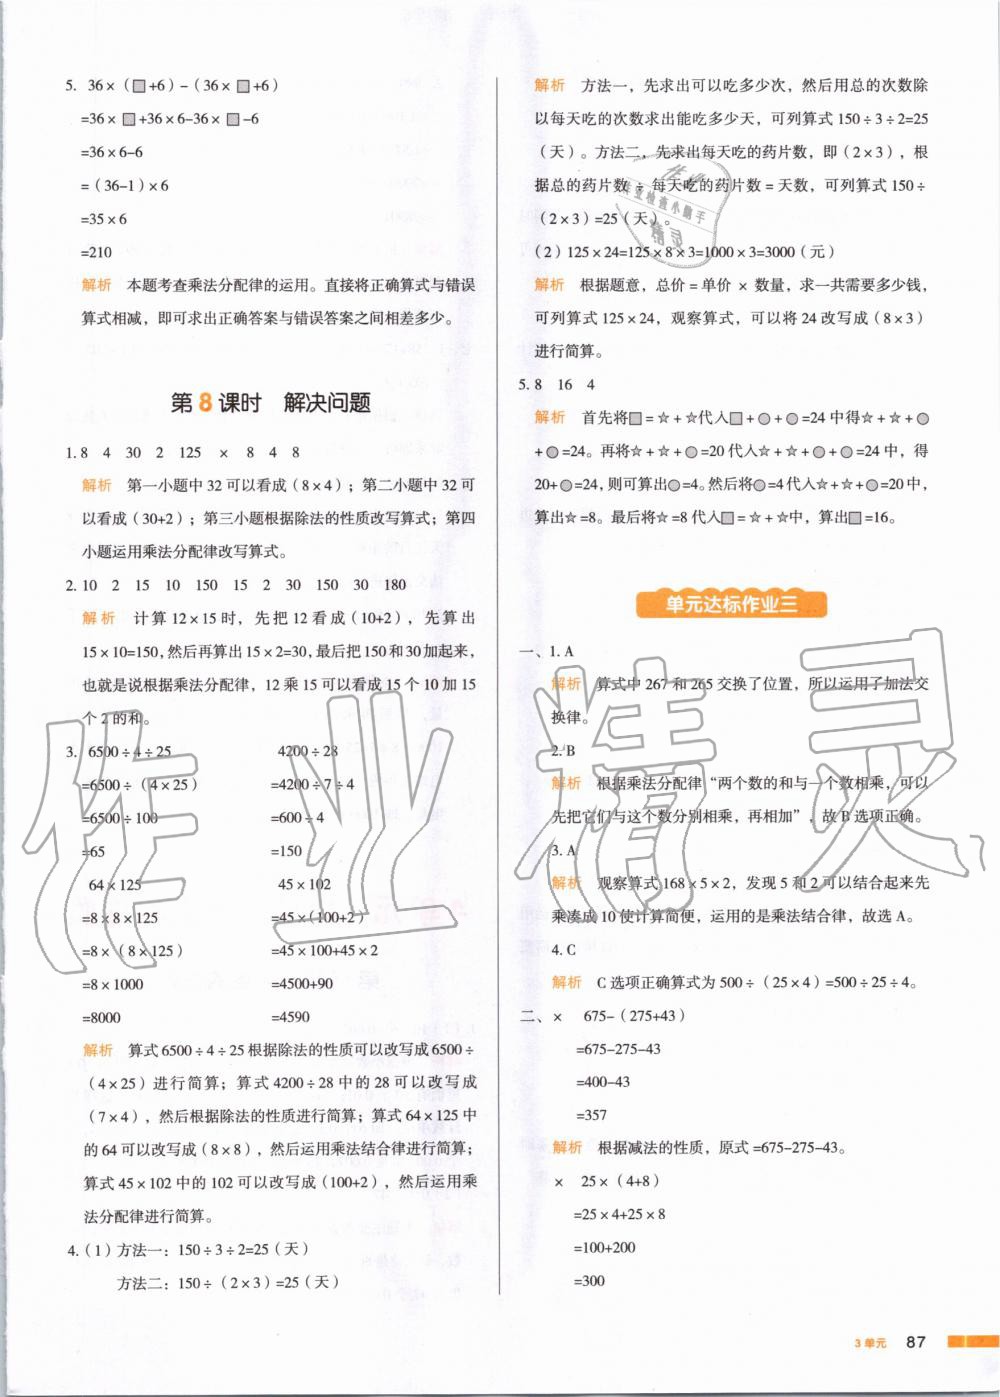 5. 36×（□+6）-（36×□+6）
=36×□+36×6-36×□-6
=36×6-6
=（36-1）×6
=35×6
=210
解析 本题考查乘法分配律的运用。直接将正确算式与错误
算式相减，即可求出正确答案与错误答案之间相差多少。
第8课时 解决问题
1. 8 4 30 2 125 × 8 4 8
解析 第一小题中32可以看成（8×4）；第二小题中32可
以看成（30+2）；第三小题根据除法的性质改写算式；第四
小题运用乘法分配律改写算式。
2. 10 2 15 10 150 15 2 30 150 30 180
解析 计算12×15时，先把12看成（10+2），先算出
15×10=150，然后再算出15×2=30，最后把150和30加起来，
也就是说根据乘法分配律，12乘15可以看成15个10加15
个2的和。
3. 6500÷4÷25 4200÷28
=6500÷（4×25） =4200÷7÷4
=6500÷100 =600÷4
=65 =150
64×125 45×102
=8×8×125 =45×（100+2）
=8×（8×125） =45×100+45×2
=8×1000 =4500+90
=8000 =4590
解析 算式6500÷4÷25根据除法的性质可以改写成6500÷
（4×25）进行简算；算式4200÷28中的28可以改写成
（7×4），然后根据除法的性质进行简算；算式64×125中
的64可以改写成（8×8），然后运用乘法结合律进行简算；
算式45×102中的102可以改写成（100+2），然后运用乘
法分配律进行简算。
4.（1）方法一：150÷3÷2=25（天）
方法二：150÷（2×3）=25（天）
解析 方法一，先求出可以吃多少次，然后用总的次数除
以每天吃的次数求出能吃多少天，可列算式150÷3÷2=25
（天）。方法二，先求出每天吃的药片数，即（2×3），根
据总的药片数÷每天吃的药片数=天数，可列算式150÷
（2×3）=25（天）。
（2）125×24=125×8×3=1000×3=3000（元）
解析 根据题意，总价=单价×数量，求一共需要多少钱，
可列算式125×24，观察算式，可以将24改写成（8×3）
进行简算。
5. 8 16 4
解析 首先将□=☆+☆代入□+○+○=24中得☆+☆+○
+○=24。再将☆+☆+○=20代入☆+☆+○+○=24中，得
20+○=24，则可算出○=4。然后将○=4代入☆+☆+○=20中，
算出☆=8。最后将☆=8代入□=☆+☆中，算出□=16。
单元达标作业三
一、1. A
解析 算式中267和265交换了位置，所以运用了加法交
换律。
2. B
解析 根据乘法分配律“两个数的和与一个数相乘，可以
先把它们与这个数分别相乘，再相加”，故B选项正确。
3. A
解析 观察算式168×5×2，发现5和2可以结合起来先
乘凑成10使计算简便，运用的是乘法结合律，故选A。
4. C
解析 C选项正确算式为500÷（25×4）=500÷25÷4。
二、× 675-（275+43）
=675-275-43
=400-43
=357
解析 根据减法的性质，原式=675-275-43。
× 25×（4+8）
=25×4+25×8
=100+200
=300
3单元 87
作业精灵